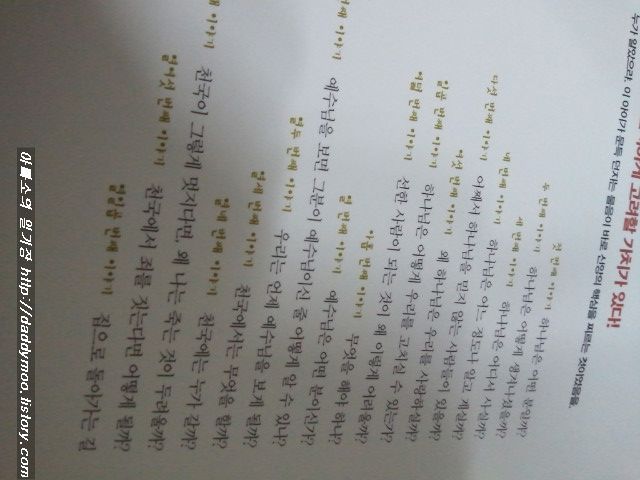 고려할 가치가 있다!!
누가 알았으랴, 이 아이가 문득 던지는 물음이 바로 신앙의 핵심을 찌르는 것이었음을.
첫 번째 이야기 하나님은 어떤 분일까?
두 번째 이야기 하나님은 어떻게 생기셨을까?
세 번째 이야기 하나님은 어디서 사실까?
네 번째 이야기 하나님은 어느 정도나 알고 계실까?
다섯 번째 이야기 어째서 하나님을 믿지 않는 사람들이 있을까?
여섯 번째 이야기 왜 하나님은 우리를 사랑하실까?
일곱 번째 이야기 하나님은 어떻게 우리를 고치실 수 있는가?
여덟 번째 이야기 선한 사람이 되는 것이 왜 이렇게 어려울까?
아홉 번째 이야기 무엇을 해야 하나?
열 번째 이야기 예수님은 어떤 분이신가?
번째 이야기 예수님을 보면 그분이 예수님이신 줄 어떻게 알 수 있나?
열두 번째 이야기 우리는 언제 예수님을 보게 될까?
열세 번째 이야기 천국에서는 무엇을 할까?
열네 번째 이야기 천국에는 누가 갈까?
이야기 천국이 그렇게 멋지다면, 왜 나는 죽는 것이 두려울까?
열여섯 번째 이야기 천국에서 죄를 짓는다면 어떻게 될까?
열일곱 번째 이야기 집으로 돌아가는 길
야베스의 일기장 http://daddymoo.tistory.com